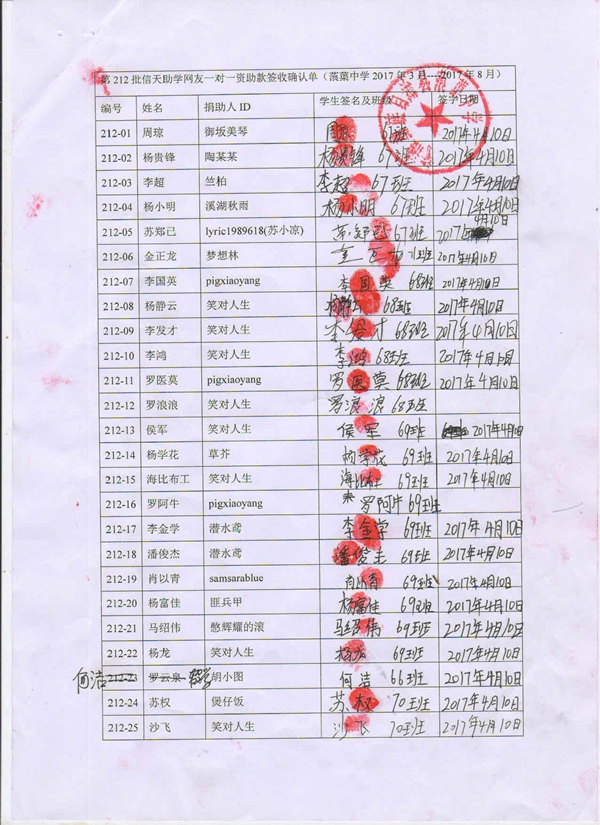 第212批信天助学网友一对一资助款签收确认单（蒗蕖中学2017年3月---2017年8月）
编号 姓名 捐助人ID 学生签名及班级 签字日期
212-01 周琼 御坂美琴 周琼 67班 2017年4月10日
212-02 杨贵锋 陶某某 杨贵锋 67班 2017年4月10日
212-03 李超 竺柏 李超 67班 2017年4月10日
212-04 杨小明 溪湖秋雨 杨小明 67班 2017年4月10日
212-05 苏郑已 lyric1989618(苏小凉) 67班 2017年4月10日
212-06 金正龙 梦想林 71班 2017年4月10日
212-07 李国英 pigxiaoyang 李国英 68班 2017年4月10日
212-08 杨静云 笑对人生 杨静云 68班 2017年4月10日
212-09 李发才 笑对人生 李发才 68班 2017年4月10日
212-10 李鸿 笑对人生 李鸿 68班 2017年4月10日
212-11 罗医莫 pigxiaoyang 罗医莫 68班 2017年4月10日
212-12 罗浪浪 笑对人生 罗浪浪 68班
212-13 侯军 笑对人生 侯军 69班 2017年4月10日
212-14 杨学花 草芥 杨学花 69班 2017年4月10日
212-15 海比布工 笑对人生 海比布工 69班 2017年4月10日
212-16 罗阿牛 pigxiaoyang 罗阿牛 69班
212-17 李金学 潜水鸢 李金学 69班 2017年4月10日
212-18 潘俊杰 潜水鸢 潘俊杰 69班 2017年4月10日
212-19 肖以青 samsarablue 肖以青 69班 2017年4月10日
212-20 杨富佳 匪兵甲 杨富佳 69班 2017年4月10日
212-21 马绍伟 憨辉耀的滚 马绍伟 69班 2017年4月10日
212-22 杨龙 笑对人生 杨龙 69班 2017年4月10日
何洁 212-23 罗云泉 胡小图 何洁 66班 2017年4月10日
212-24 苏权 煲仔饭 苏权 70班 2017年4月10日
212-25 沙飞 笑对人生 沙飞 70班 2017年4月10日